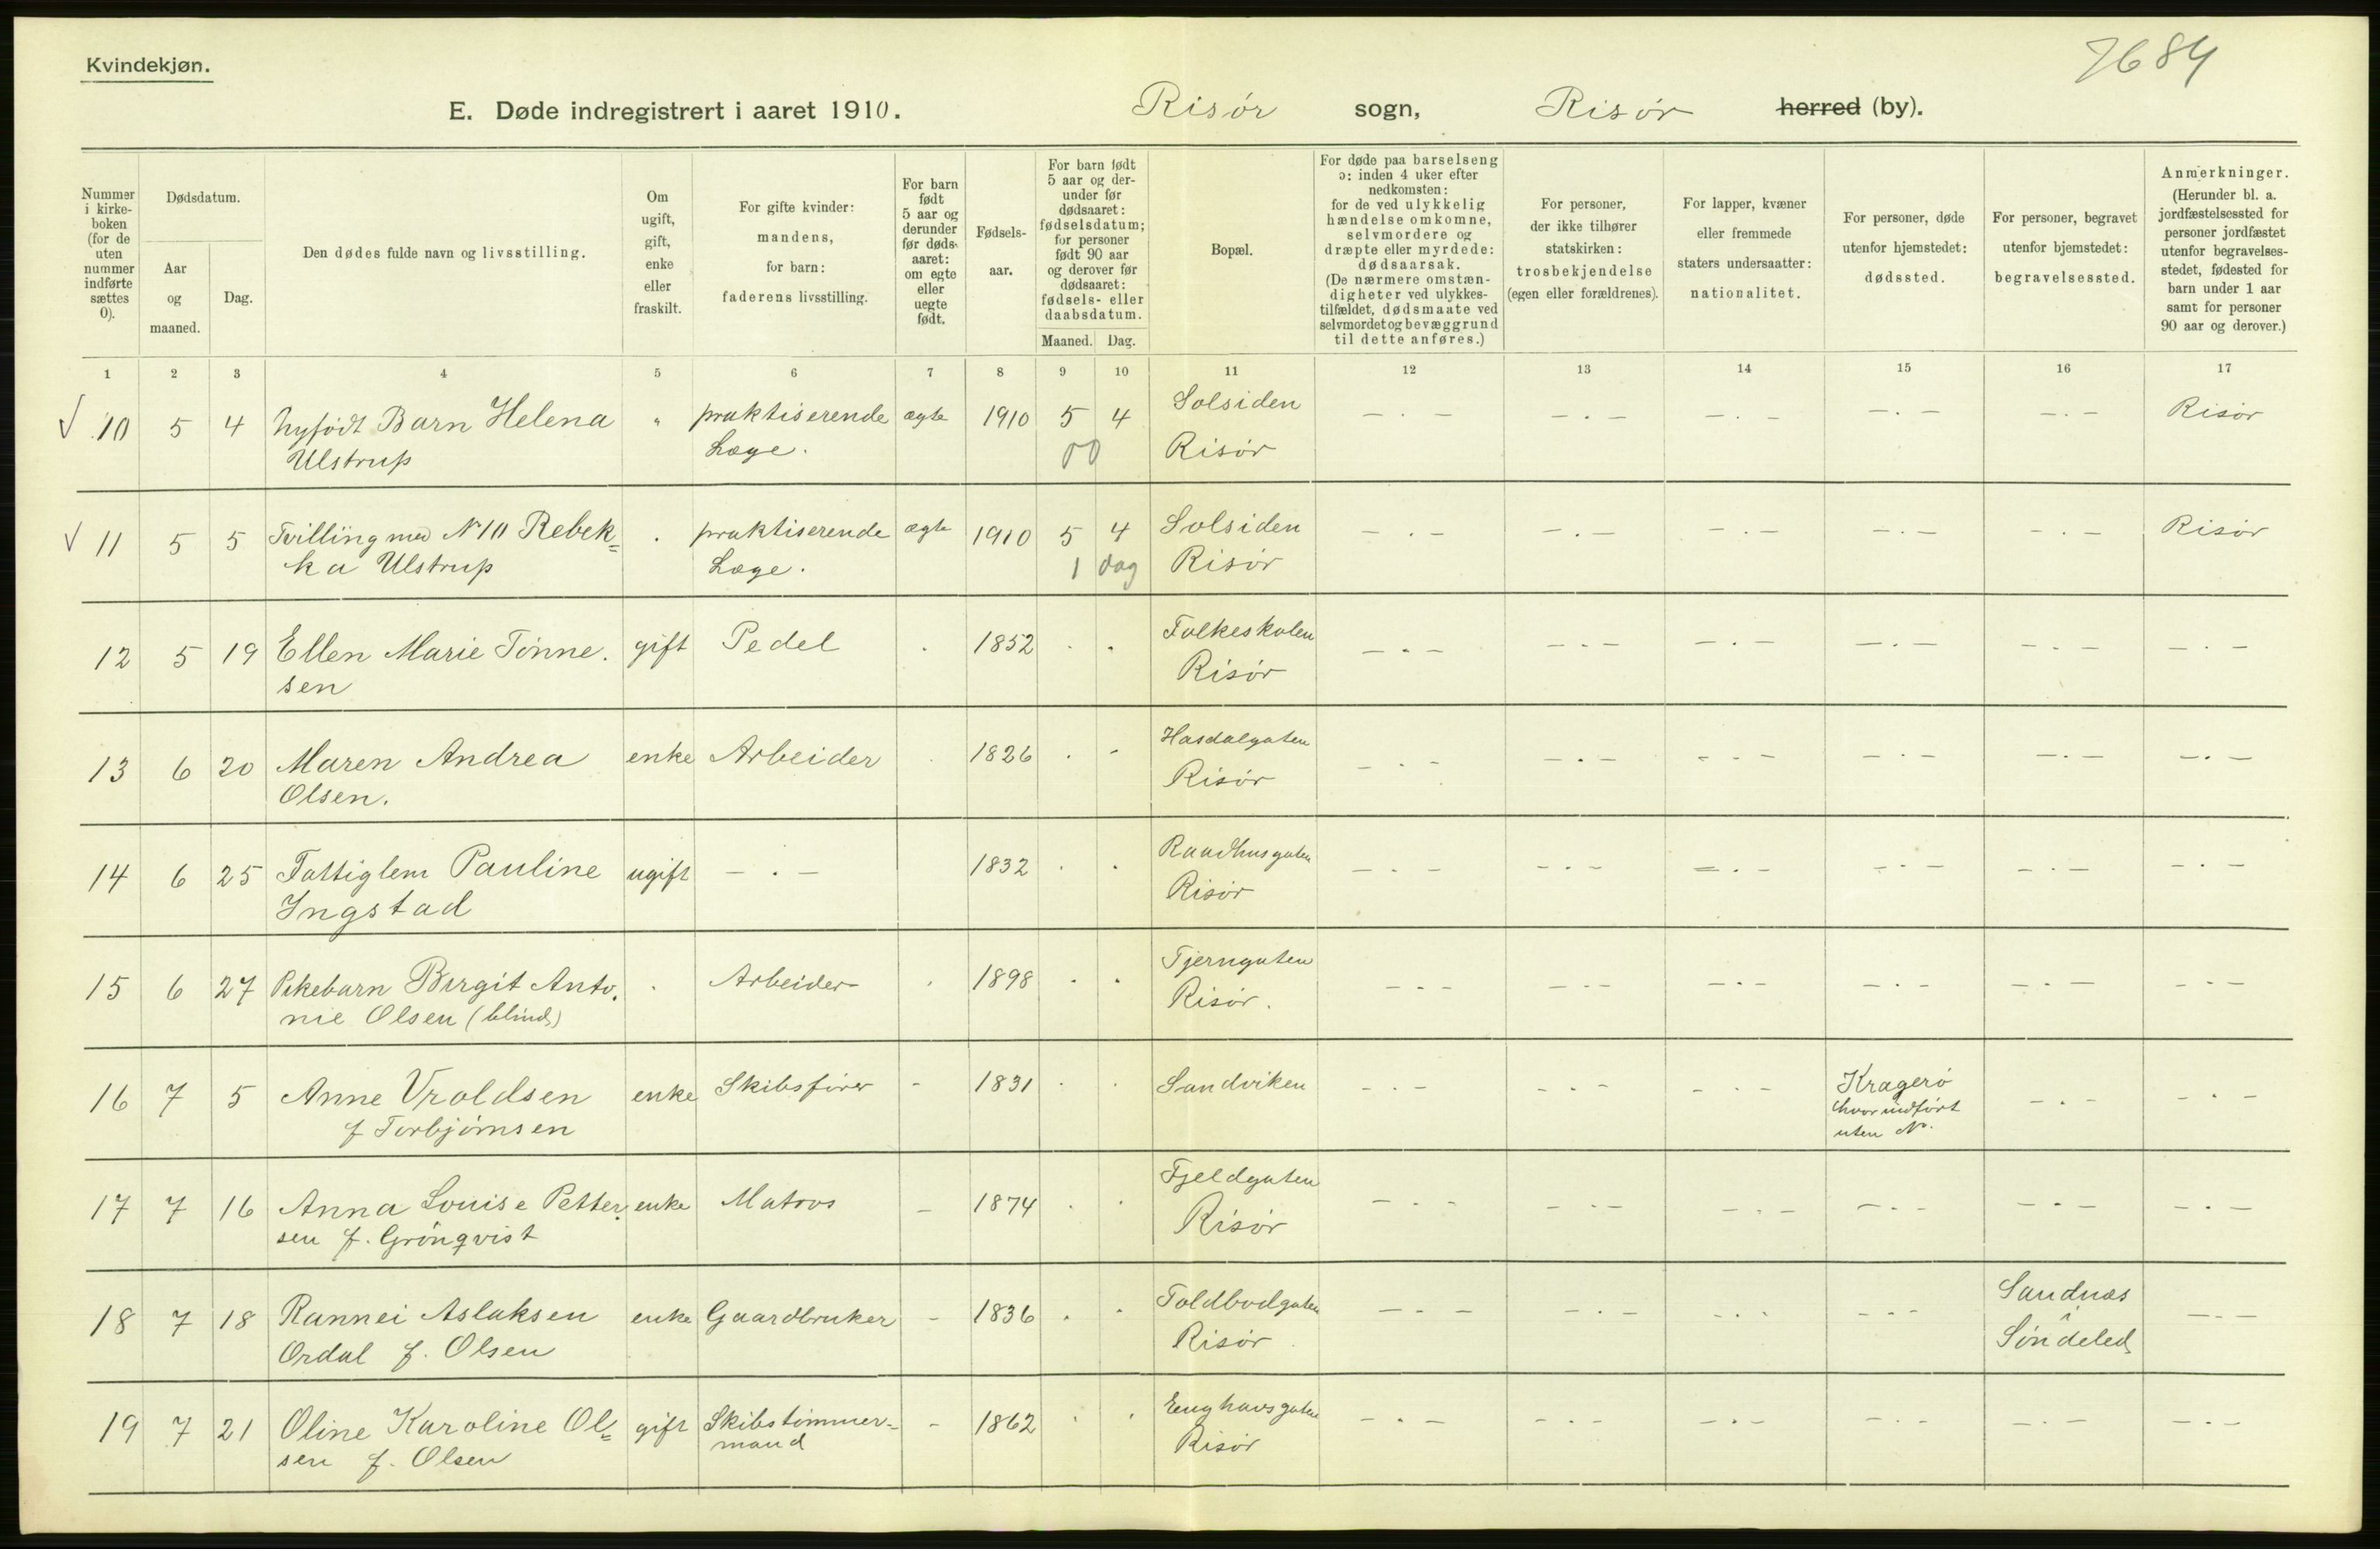 Kvindekjøn.
7684
E. Døde indregistrert i aaret 1910. Risör sogn, Risör herred (by).
Nummer i kirke- boken (for de uten nummer indførte sættes 0).
Dødsdatum.
Aar og maaned.
Dag.
Den dødes fulde navn og livsstilling.
Om ugift, gift, enke eller fraskilt.
For gifte kvinder: mandens, for barn: faderens livsstilling.
For barn født 5 aar og derunder før døds- aaret: om egte eller uegte født.
Fødsels- aar.
For barn født 5 aar og der- under før dødsaaret: fødselsdatum; for personer født 90 aar og derover før dødsaaret: fødsels- eller daabsdatum.
Maaned. Dag.
Bopæl.
For døde paa barselseng ɔ: inden 4 uker efter nedkomsten: for de ved ulykkelig hændelse omkomne, selvmordere og dræpte eller myrdede: dødsaarsak. (De nærmere omstæn- digheter ved ulykkes- tilfældet, dødsmaate ved selvmordet og bevæggrund til dette anføres.)
For personer, der ikke tilhører statskirken: trosbekjendelse (egen eller forældrenes).
For lapper, kvæner eller fremmede staters undersaatter: nationalitet.
For personer, døde utenfor hjemstedet: dødssted.
For personer, begravet utenfor hjemstedet: begravelsessted.
Anmerkninger. (Herunder bl. a. jordfæstelsessted for personer jordfæstet utenfor begravelses- stedet, fødested for barn under 1 aar samt for personer 90 aar og derover.)
1 2 3 4 5 6 7 8 9 10 11 12 13 14 15 16 17
√ 10 5 4 Nyfödt Barn Helena " praktiserende ægte 1910 5 4 Solsiden — . — — . — — . — — . — — . — Risör
Ulstrup Læge. 00 Risör
√ 11 5 5 Tvilling med No 10 Rebek= . praktiserende ægte 1910 5 4 Solsiden — . — — . — — . — — . — — . — Risör
ka Ulstrup Læge. 1 dag Risör
12 5 19 Ellen Marie Tönne. gift Pedel . 1852 . . Folkeskolen — . — — . — — . — — . — — . — — . —
sen Risör
13 6 20 Maren Andrea enke Arbeider . 1826 . . Hasdalgaten — . — — . — — . — — . — — . — — . —
Olsen. Risör
14 6 25 Fattiglem Pauline ugift — . — 1832 . . Raadhusgaten — . — — . — — . — — . — — . — — . —
Ingstad Risör
15 6 27 Pikebarn Birgit Anto. . Arbeider . 1898 . . Tjerngaten — . — — . — — . — — . — — . — — . —
nie Olsen (blind) Risör.
16 7 5 Anne Vroldsen enke Skibsförer - 1831 . . Sandviken — . — — . — — . — Kragerö — . — — . —
f Torbjörnsen hvor indfört
uten No.
17 7 16 Anna Louise Petter. enke Matros – 1874 . . Fjeldgaten — . — — . — — . — — . — — . — — . —
sen f. Grönqvist Risör
18 7 18 Rannei Aslaksen enke Gaardbruker – 1836 . . Toldbodgaten — . — — . — — . — — . — Sandnæs — . —
Ordal f. Olsen Risör i Söndeled
19 7 21 Oline Karoline Ol= gift Skibstömmer- – 1862 . . Enghavsgaten — . — — . — — . — — . — — . — — . —
sen f. Olsen mand Risör